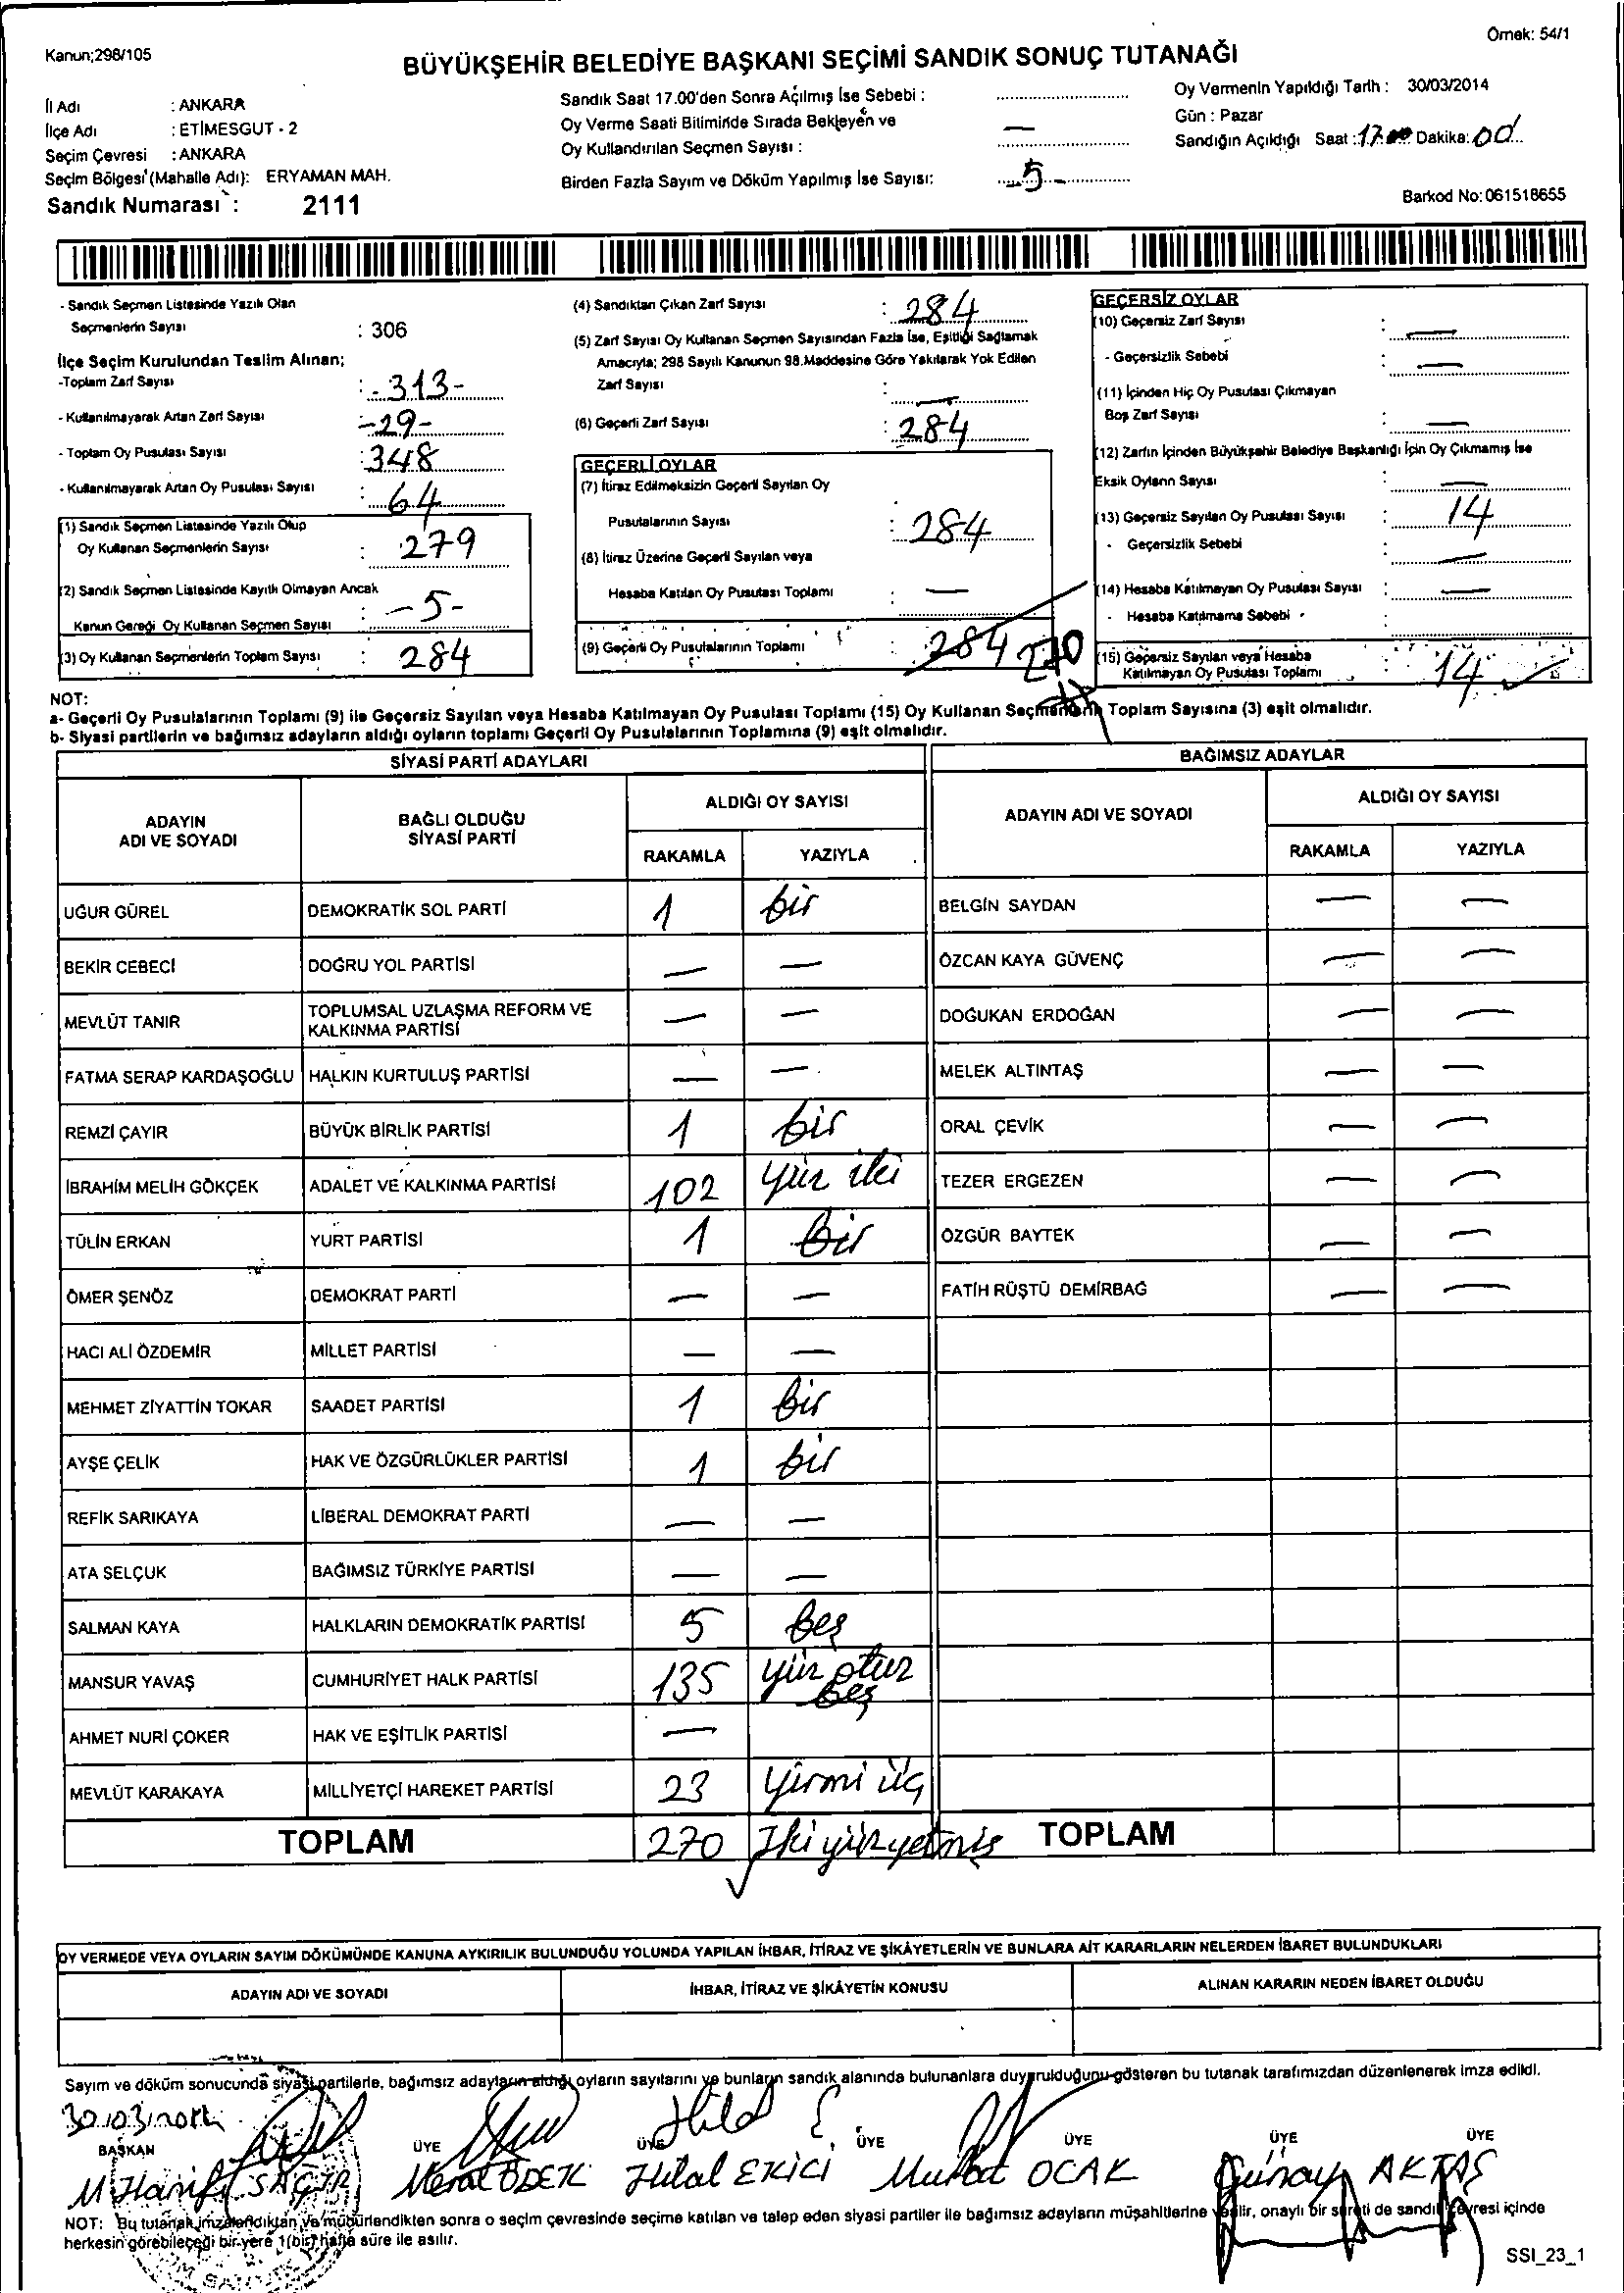 Kanun;298/105
Örnek: 54/1
BÜYÜKŞEHİR BELEDİYE BAŞKANI SEÇİMİ SANDIK SONUÇ TUTANAĞI
İl Adı : ANKARA
İlçe Adı : ETİMESGUT - 2
Seçim Çevresi : ANKARA
Seçim Bölgesi (Mahalle Adı): ERYAMAN MAH.
Sandık Numarası : 2111
Sandık Saat 17.00'den Sonra Açılmış İse Sebebi :
Oy Verme Saati Bitiminde Sırada Bekleyen ve
Oy Kullandırılan Seçmen Sayısı : —
Birden Fazla Sayım ve Döküm Yapılmış İse Sayısı: 5-
Oy Vermenin Yapıldığı Tarih : 30/03/2014
Gün : Pazar
Sandığın Açıldığı Saat : 17.00 Dakika: 00
Barkod No: 061518655
- Sandık Seçmen Listesinde Yazılı Olan
Seçmenlerin Sayısı : 306
İlçe Seçim Kurulundan Teslim Alınan;
-Toplam Zarf Sayısı : -313-
- Kullanılmayarak Artan Zarf Sayısı -29-
- Toplam Oy Pusulası Sayısı : 348
- Kullanılmayarak Artan Oy Pusulası Sayısı : 64
(1) Sandık Seçmen Listesinde Yazılı Olup
Oy Kullanan Seçmenlerin Sayısı : 279
(2) Sandık Seçmen Listesinde Kayıtlı Olmayan Ancak
Kanun Gereği Oy Kullanan Seçmen Sayısı : -5-
(3) Oy Kullanan Seçmenlerin Toplam Sayısı : 284
(4) Sandıktan Çıkan Zarf Sayısı : 284
(5) Zarf Sayısı Oy Kullanan Seçmen Sayısından Fazla İse, Eşitliği Sağlamak
Amacıyla; 298 Sayılı Kanunun 98.Maddesine Göre Yakılarak Yok Edilen
Zarf Sayısı : —
(6) Geçerli Zarf Sayısı : 284
GEÇERLİ OYLAR
(7) İtiraz Edilmeksizin Geçerli Sayılan Oy
Pusulalarının Sayısı : 284
(8) İtiraz Üzerine Geçerli Sayılan veya
Hesaba Katılan Oy Pusulası Toplamı : —
(9) Geçerli Oy Pusulalarının Toplamı : 284 270
GEÇERSİZ OYLAR
(10) Geçersiz Zarf Sayısı : —
- Geçersizlik Sebebi : —
(11) İçinden Hiç Oy Pusulası Çıkmayan
Boş Zarf Sayısı : —
(12) Zarfın İçinden Büyükşehir Belediye Başkanlığı İçin Oy Çıkmamış İse
Eksik Oyların Sayısı : —
(13) Geçersiz Sayılan Oy Pusulası Sayısı : 14
- Geçersizlik Sebebi : —
(14) Hesaba Katılmayan Oy Pusulası Sayısı : —
- Hesaba Katılmama Sebebi
(15) Geçersiz Sayılan veya Hesaba
Katılmayan Oy Pusulası Toplamı : 14 ✓
NOT:
a- Geçerli Oy Pusulalarının Toplamı (9) ile Geçersiz Sayılan veya Hesaba Katılmayan Oy Pusulası Toplamı (15) Oy Kullanan Seçmenlerin Toplam Sayısına (3) eşit olmalıdır.
b- Siyasi partilerin ve bağımsız adayların aldığı oyların toplamı Geçerli Oy Pusulalarının Toplamına (9) eşit olmalıdır.
SİYASİ PARTİ ADAYLARI
BAĞIMSIZ ADAYLAR
ADAYIN
ADI VE SOYADI
BAĞLI OLDUĞU
SİYASİ PARTİ
ALDIĞI OY SAYISI
RAKAMLA YAZIYLA
ADAYIN ADI VE SOYADI
ALDIĞI OY SAYISI
RAKAMLA YAZIYLA
UĞUR GÜREL DEMOKRATİK SOL PARTİ 1 bir BELGİN SAYDAN — —
BEKİR CEBECİ DOĞRU YOL PARTİSİ — — ÖZCAN KAYA GÜVENÇ — —
MEVLÜT TANIR TOPLUMSAL UZLAŞMA REFORM VE
KALKINMA PARTİSİ — — DOĞUKAN ERDOĞAN — —
FATMA SERAP KARDAŞOĞLU HALKIN KURTULUŞ PARTİSİ — — MELEK ALTINTAŞ — —
REMZİ ÇAYIR BÜYÜK BİRLİK PARTİSİ 1 bir ORAL ÇEVİK — —
İBRAHİM MELİH GÖKÇEK ADALET VE KALKINMA PARTİSİ 102 yüz iki TEZER ERGEZEN — —
TÜLİN ERKAN YURT PARTİSİ 1 Bir ÖZGÜR BAYTEK — —
ÖMER ŞENÖZ DEMOKRAT PARTİ — — FATİH RÜŞTÜ DEMİRBAĞ — —
HACI ALİ ÖZDEMİR MİLLET PARTİSİ — —
MEHMET ZİYATTİN TOKAR SAADET PARTİSİ 1 bir
AYŞE ÇELİK HAK VE ÖZGÜRLÜKLER PARTİSİ 1 bir
REFİK SARIKAYA LİBERAL DEMOKRAT PARTİ — —
ATA SELÇUK BAĞIMSIZ TÜRKİYE PARTİSİ — —
SALMAN KAYA HALKLARIN DEMOKRATİK PARTİSİ 5 Beş
MANSUR YAVAŞ CUMHURİYET HALK PARTİSİ 135 yüz otuz
beş
AHMET NURİ ÇOKER HAK VE EŞİTLİK PARTİSİ —
MEVLÜT KARAKAYA MİLLİYETÇİ HAREKET PARTİSİ 23 yirmi üç
TOPLAM 270 İki yüz yetmiş TOPLAM
✓
OY VERMEDE VEYA OYLARIN SAYIM DÖKÜMÜNDE KANUNA AYKIRILIK BULUNDUĞU YOLUNDA YAPILAN İHBAR, İTİRAZ VE ŞİKÂYETLERİN VE BUNLARA AİT KARARLARIN NELERDEN İBARET BULUNDUKLARI
ADAYIN ADI VE SOYADI İHBAR, İTİRAZ VE ŞİKÂYETİN KONUSU ALINAN KARARIN NEDEN İBARET OLDUĞU
Sayım ve döküm sonucunda siyasi partilerle, bağımsız adayların aldığı oyların sayılarını ve bunların sandık alanında bulunanlara duyurulduğunu gösteren bu tutanak tarafımızdan düzenlenerek imza edildi.
30.03.2014
BAŞKAN ÜYE ÜYE ÜYE ÜYE ÜYE ÜYE
M. Hanifi SAĞIR Meral ÖDEK Hilal EKİCİ Murat OCAK Günay AKTAŞ
NOT: Bu tutanak imzalandıktan ve mühürlendikten sonra o seçim çevresinde seçime katılan ve talep eden siyasi partiler ile bağımsız adayların müşahitlerine verilir, onaylı bir sureti de sandık çevresi içinde
herkesin görebileceği bir yere 1(bir) hafta süre ile asılır.
SSI_23_1